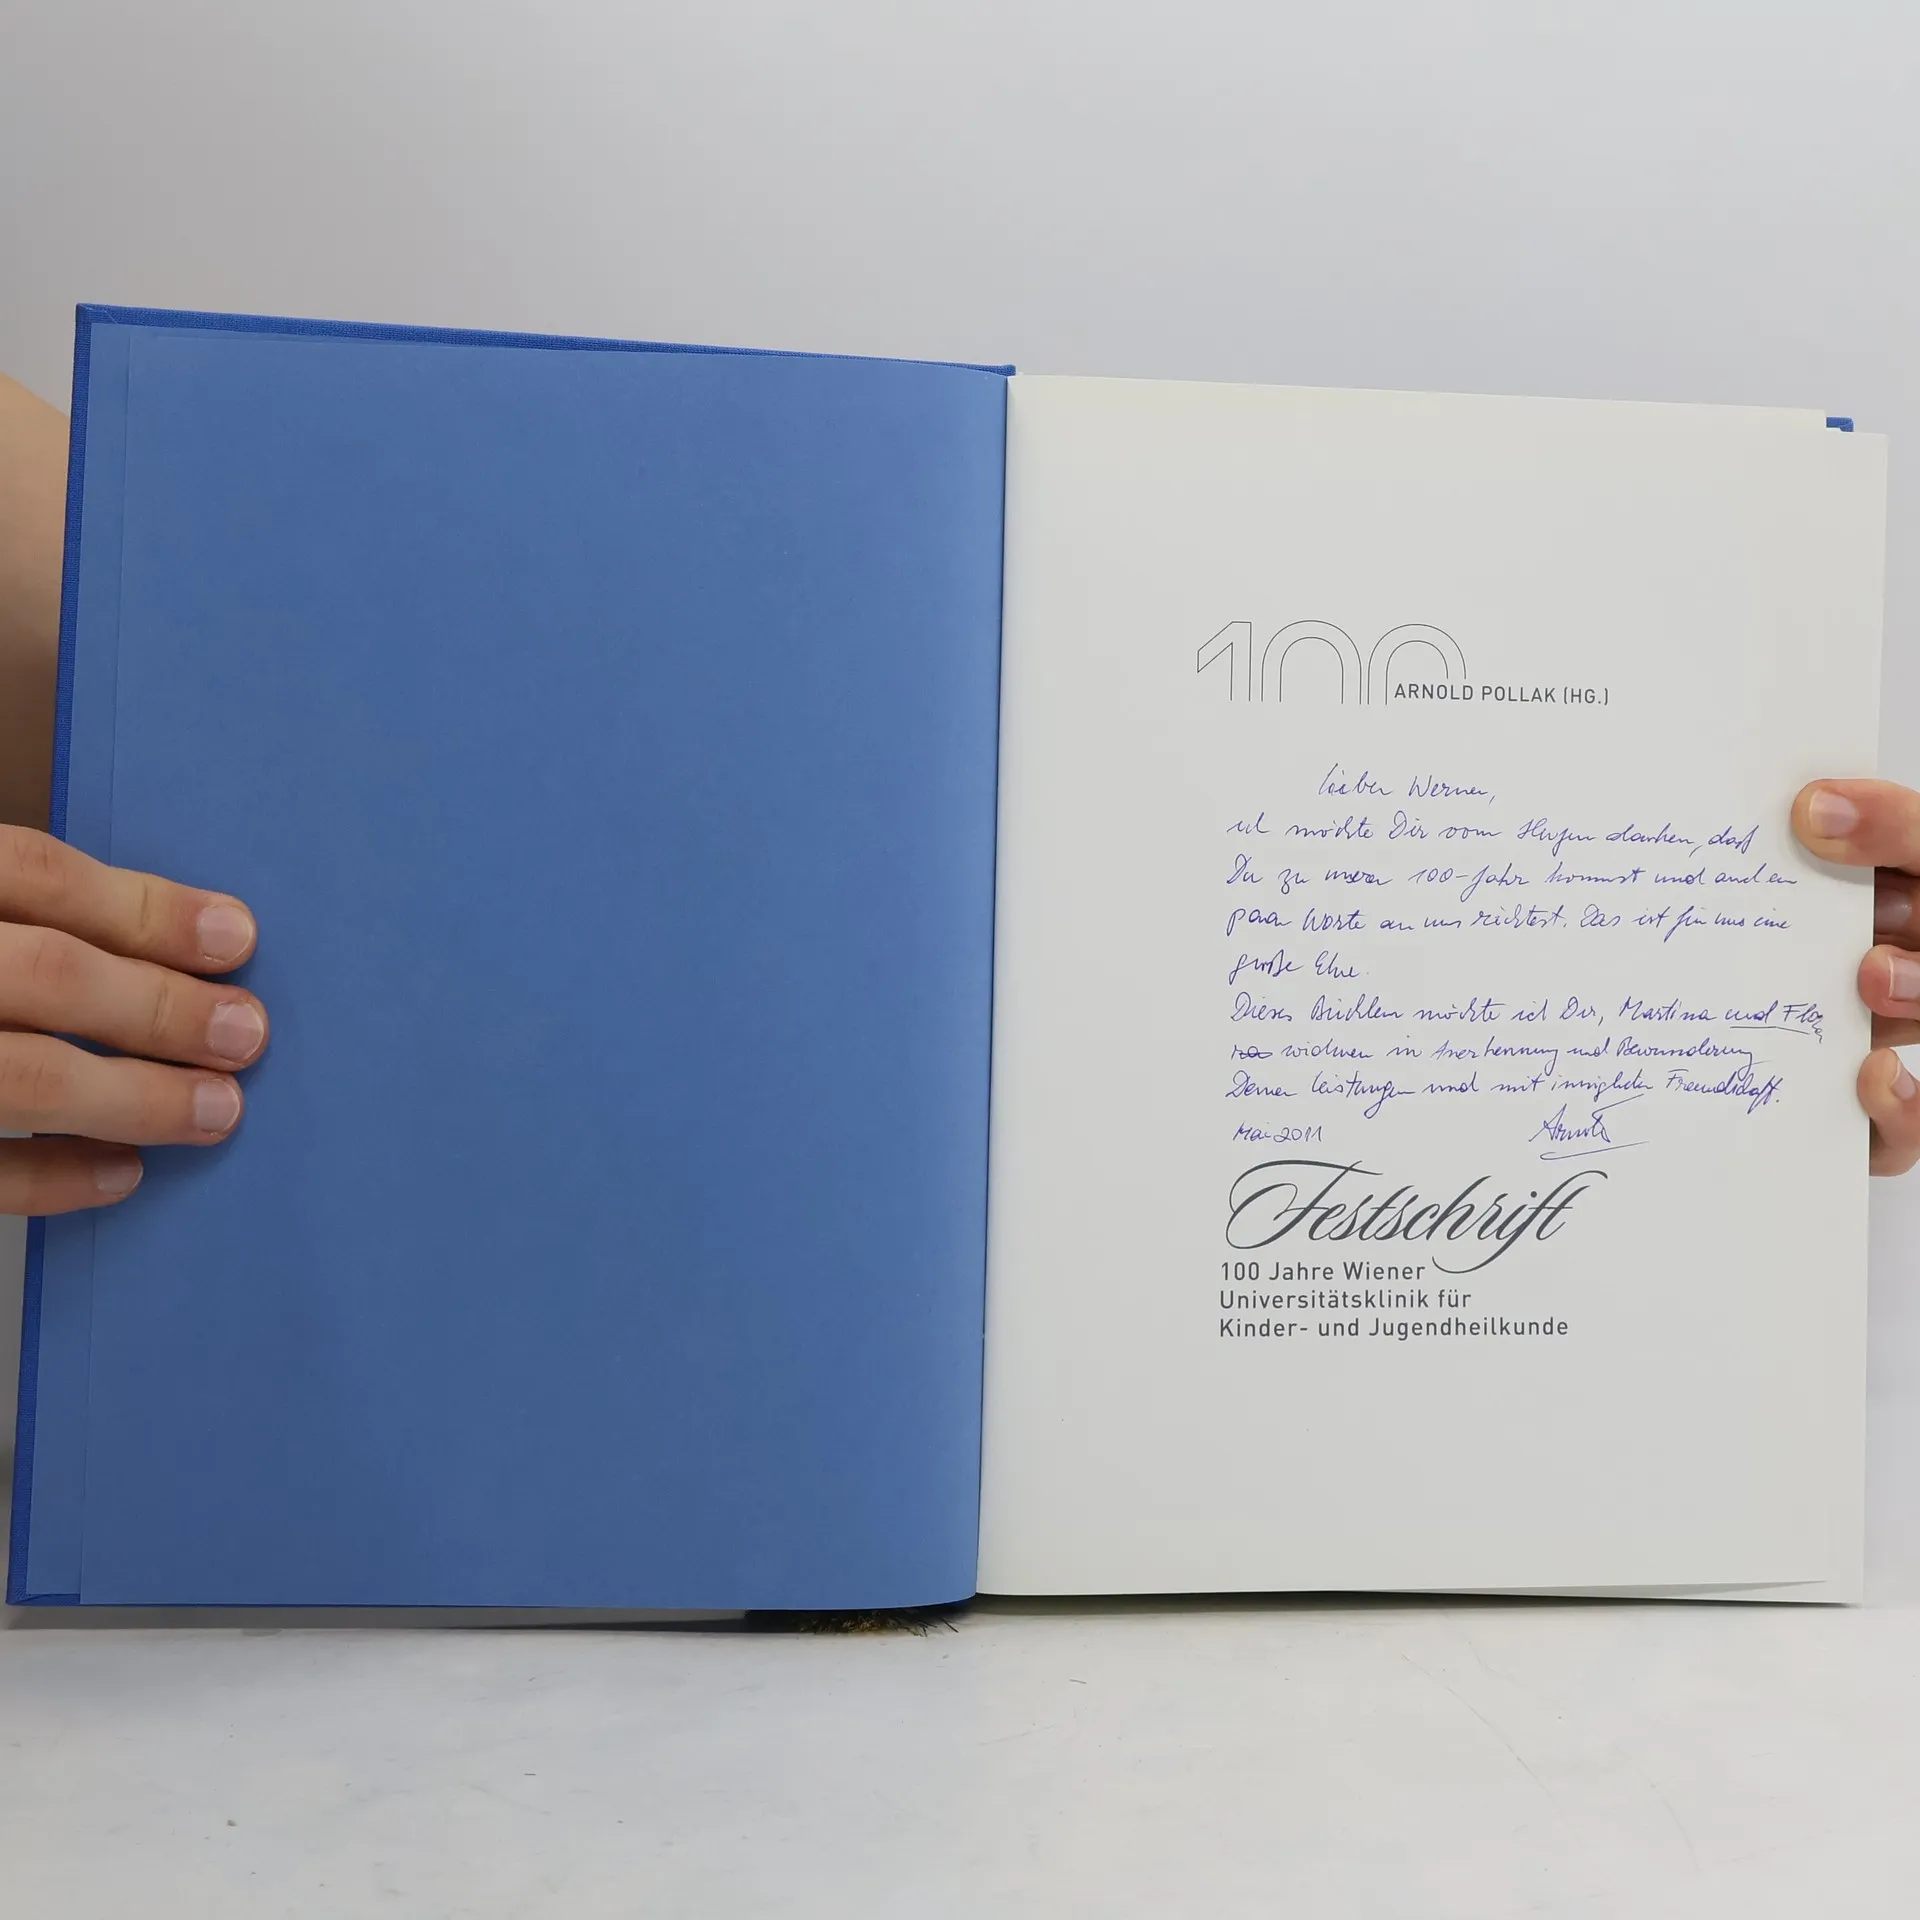 100 ARNOLD POLLAK (HG.)
Lieber Werner,
ich möchte Dir vom Herzen danken, daß
Du zu unserer 100-Jahr kommst und auch ein
paar Worte an uns richtest. Das ist für uns eine
große Ehre.
Dieses Büchlein möchte ich Dir, Martina und
widmen in Anerkennung und Bewunderung
Deiner Leistungen und mit inniglicher Freundschaft.
Mai 2011 Arnold
Festschrift
100 Jahre Wiener
Universitätsklinik für
Kinder- und Jugendheilkunde